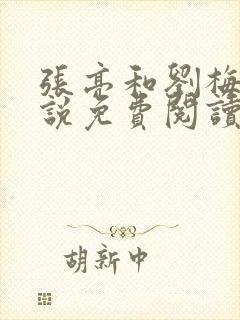 張亮和劉梅
說免費閱讀
胡新中